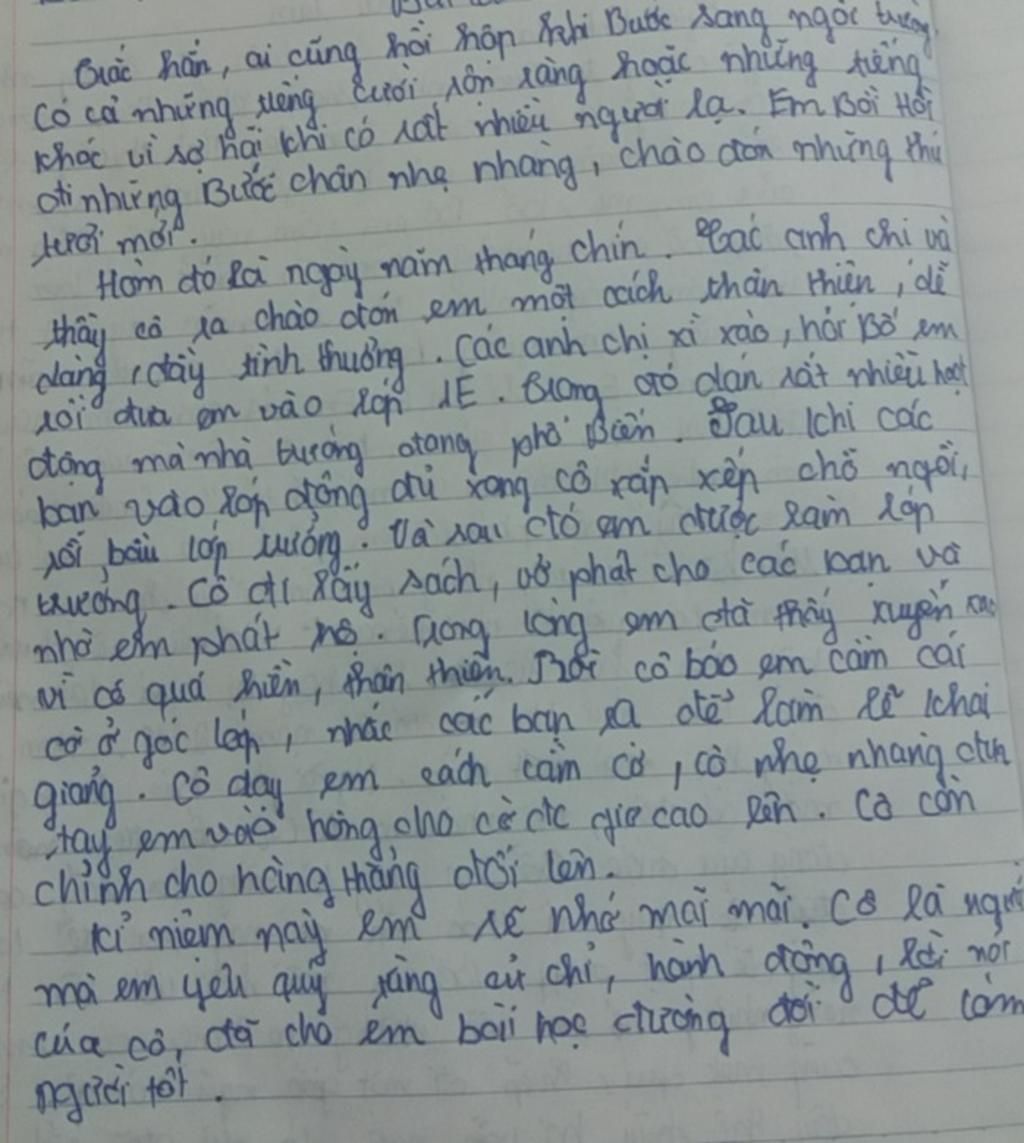 Chắc hẳn, ai cũng hồi hộp khi Bước sang ngôi trường.
Có cả những tiếng cười rôn ràng hoặc những tiếng
khóc vì sợ hãi khi có rất nhiều người lạ. Em Bồi Hồi
đi những Bước chân nhẹ nhàng, chào đón những thứ
tươi mới.
Hôm đó là ngày năm tháng chín. Các anh chị và
thầy cô ra chào đón em một cách thân thiện, dễ
dàng, đầy tình thương. Các anh chị xì xào, hỏi Bố em
rồi đưa em vào lớp 1E. Trong đó dán rất nhiều hoạt
động mà nhà trường đang phổ Biến. Sau khi các
bạn vào lớp đông đủ xong cô sắp xếp chỗ ngồi,
rồi bầu lớp trưởng. Và sau đó em được làm lớp
trưởng. Cô đi lấy sách, vở phát cho các bạn và
nhờ em phát hộ. Trong lòng em đã thấy xuyến xao
vì cô quá hiền, thân thiện. Rồi cô bảo em cầm cái
cờ ở góc lớp, nhắc các bạn ra để làm lễ khai
giảng. Cô dạy em cách cầm cờ, cô nhẹ nhàng
tay em vào hông cho cờ đc giơ cao lên. Cô còn
chỉnh cho hàng thẳng đối lên.
Kỉ niệm này em sẽ nhớ mãi mãi. Cô là người
mà em yêu quý rằng cử chỉ, hành động, lời nói
của cô, đã cho em bài học đường đời để làm
người tốt.